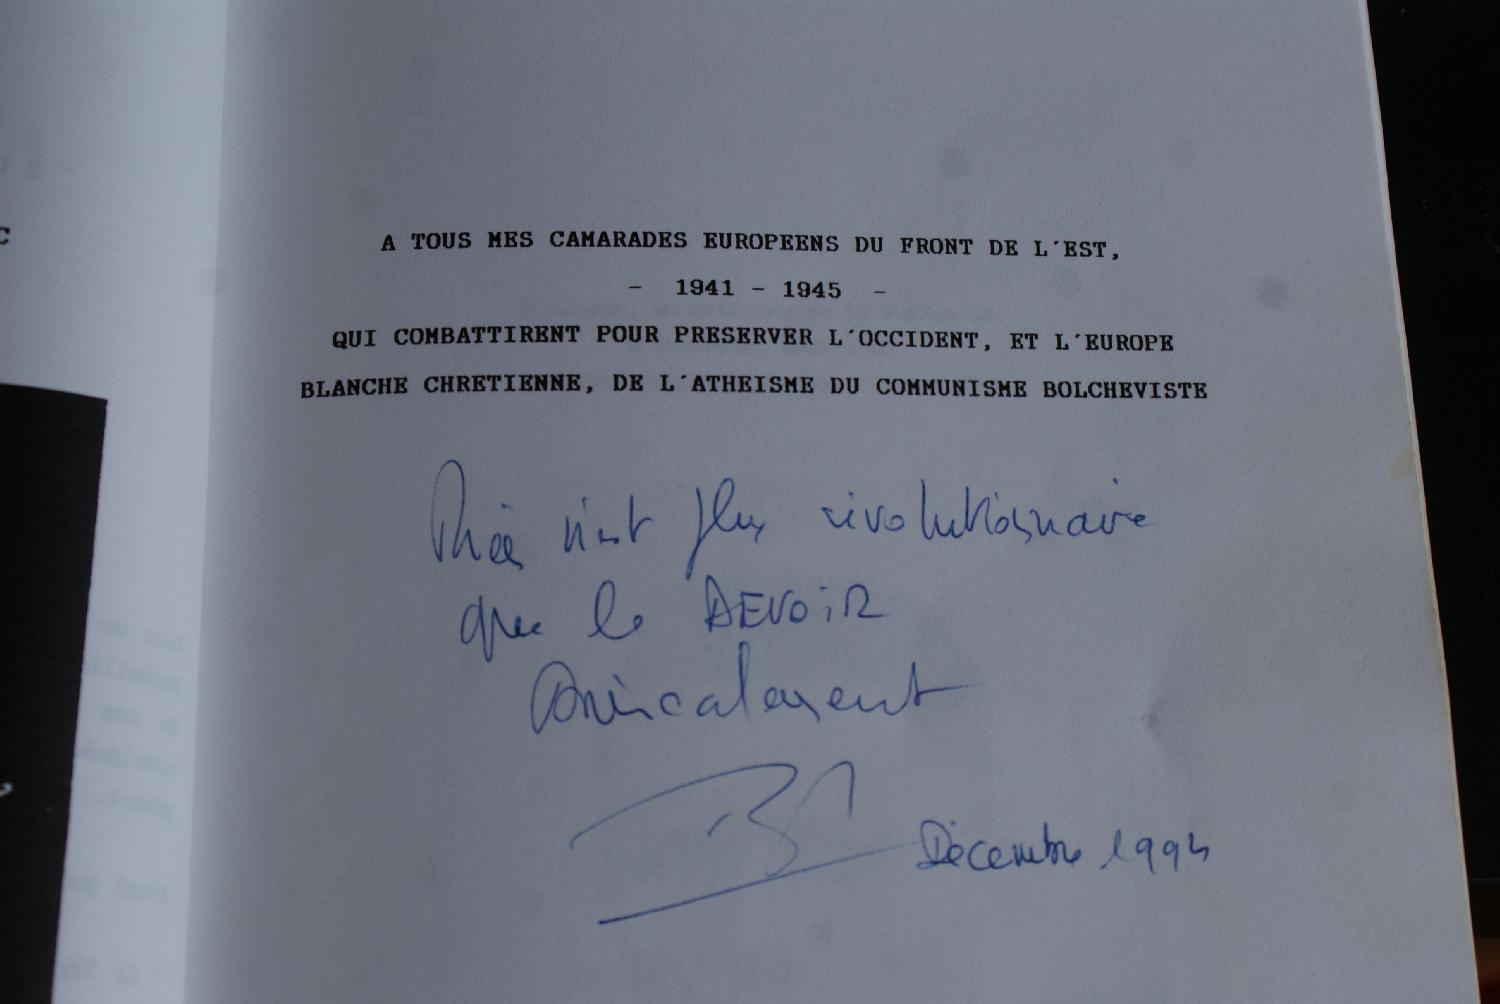 A TOUS MES CAMARADES EUROPEENS DU FRONT DE L'EST,
- 1941 - 1945 -
QUI COMBATTIRENT POUR PRESERVER L'OCCIDENT, ET L'EUROPE
BLANCHE CHRETIENNE, DE L'ATHEISME DU COMMUNISME BOLCHEVISTE
n'est plus révolutionnaire
que le DEVOIR
Amicalement
Décembre 1994